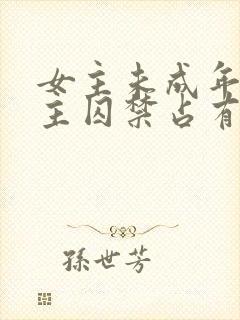 女主未成年
主囚禁占有
孫世芳